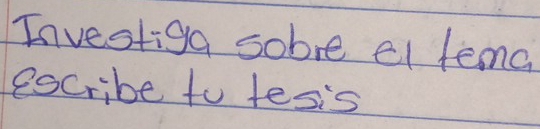 Investiga sobre el tema
escribe tu tesis